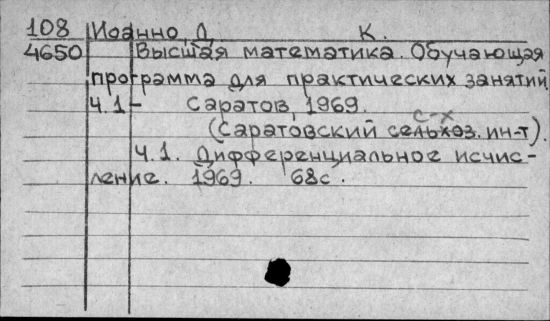 108 Иоанно, Д. К.
4650 Высшая математика. Обучающая
программа для практических занятий
Ч.1 - Саратов, 1969.
с-х
(Саратовский сельхоз. ин-т).
Ч.1. Дифференциальное исчис-
ление. 1969. 68с.